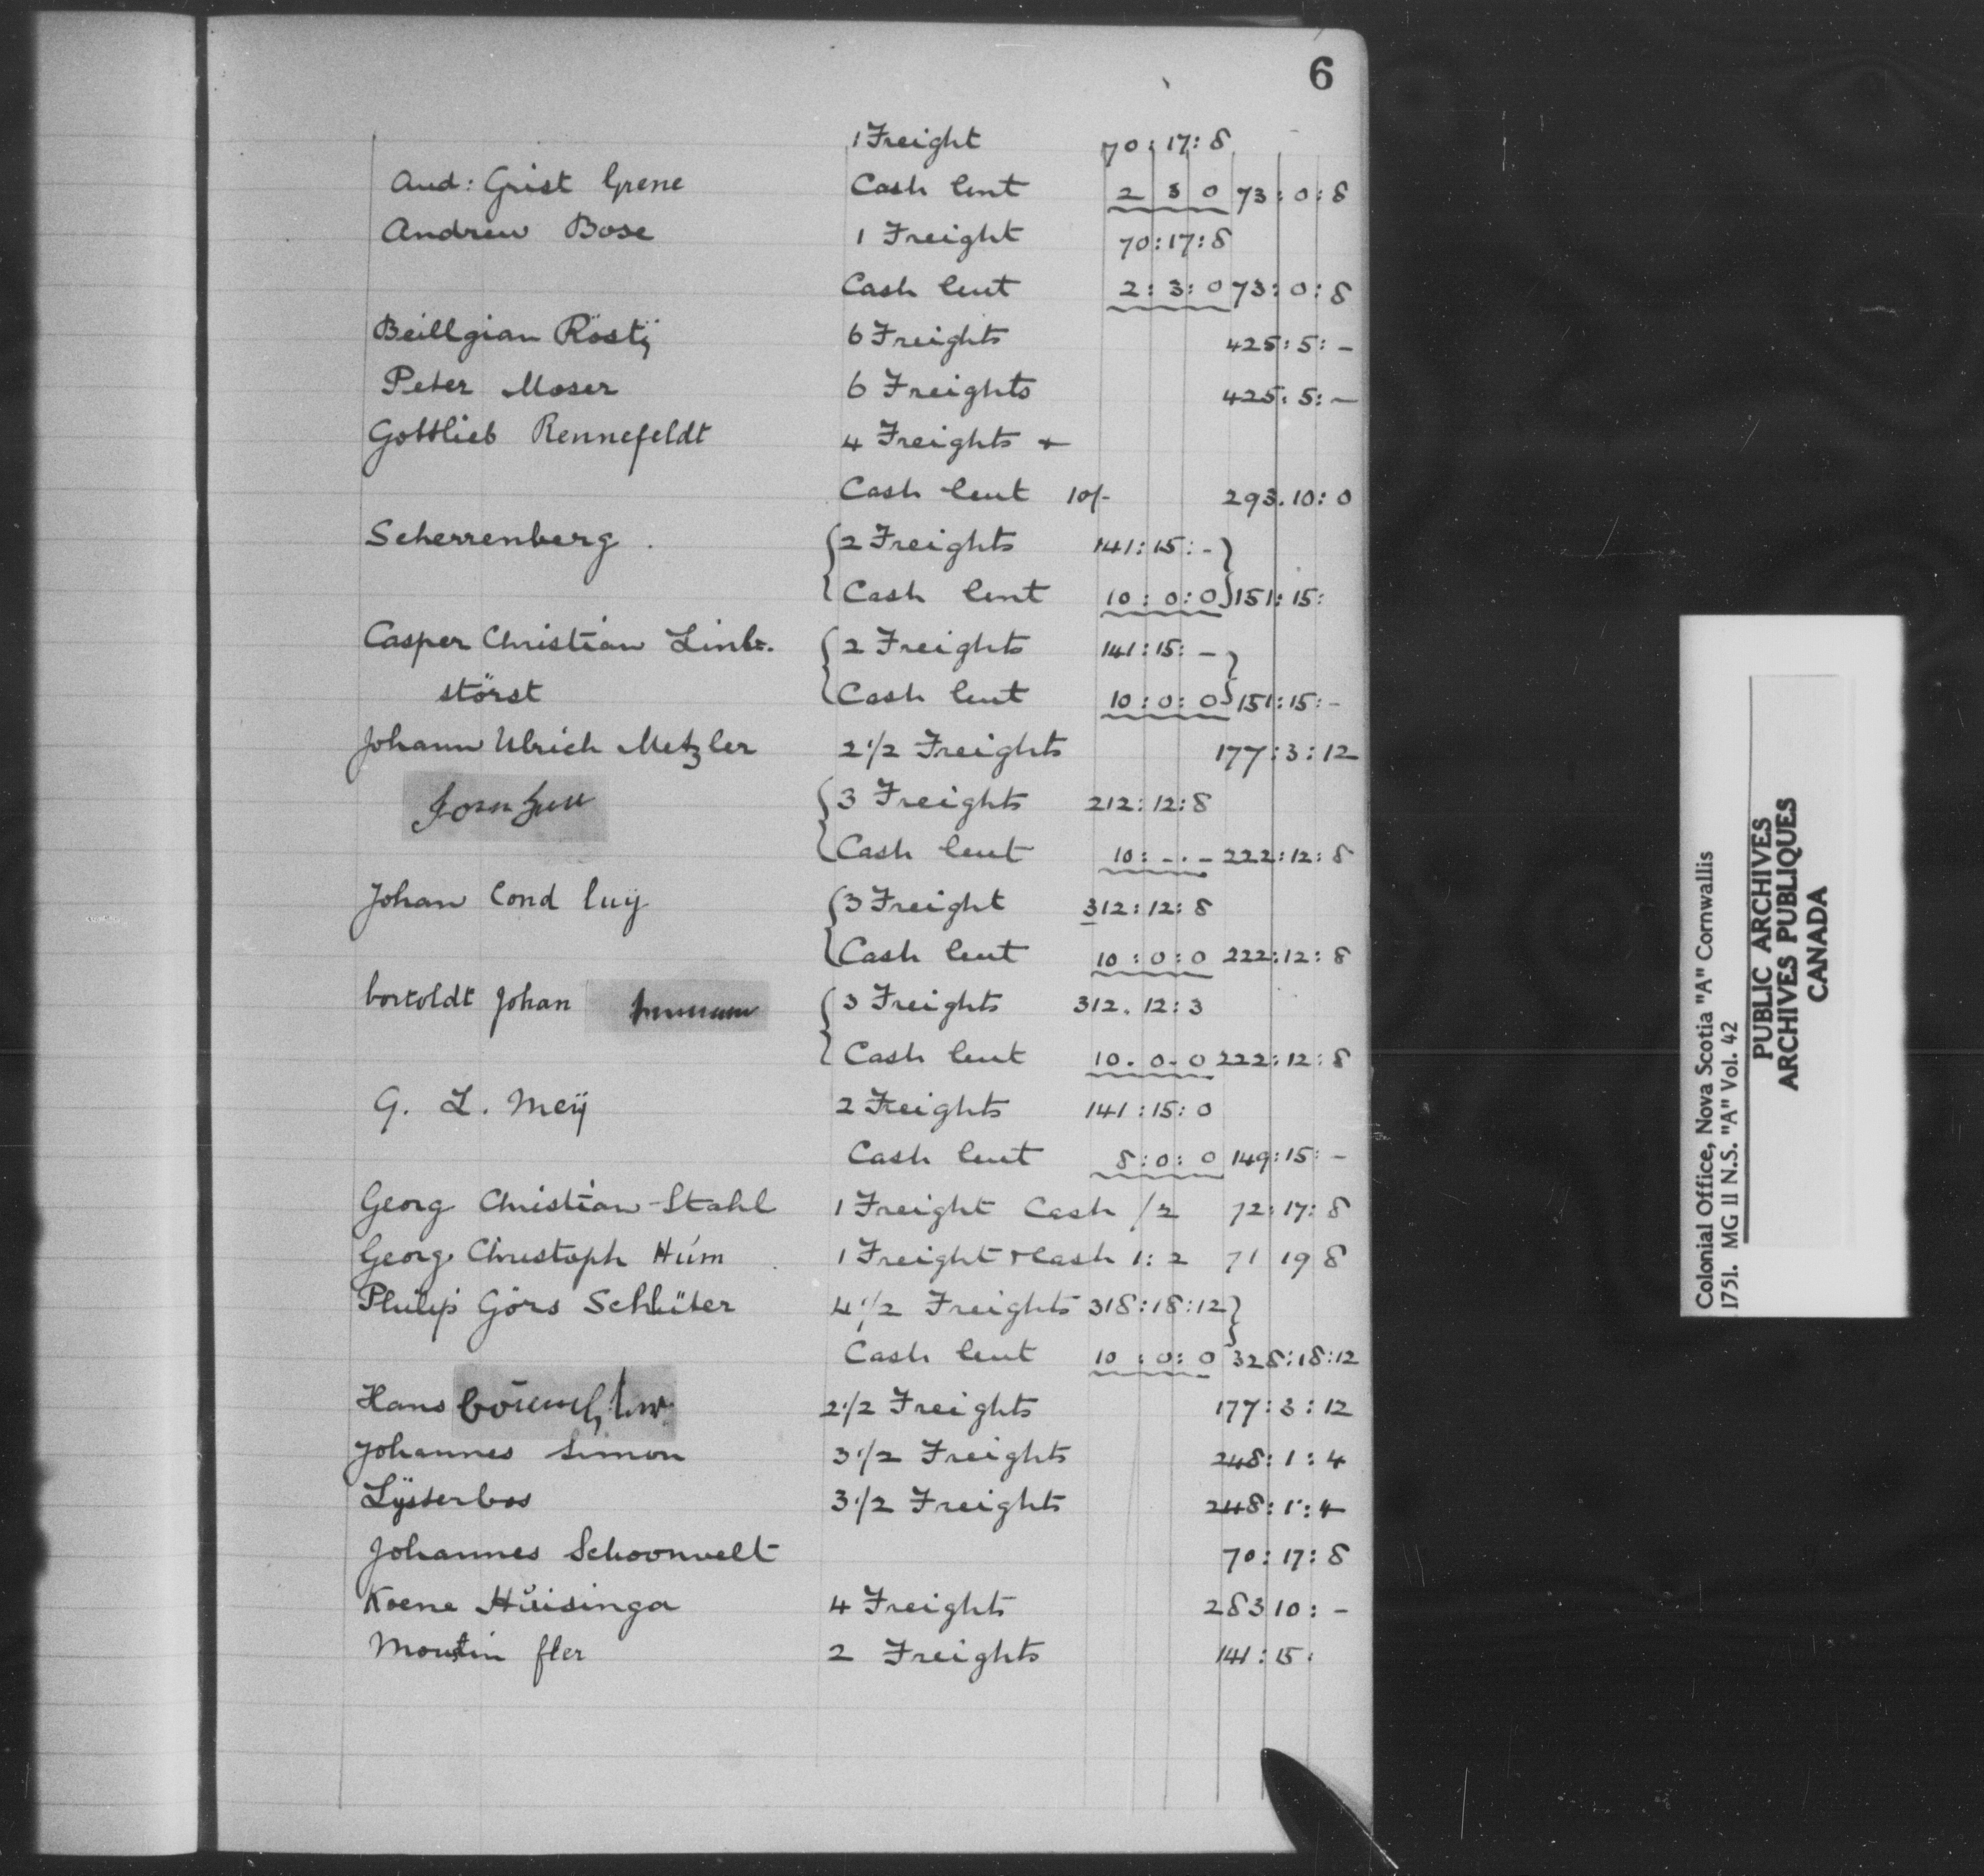 6
1 Freight 70:17:8
Aud: Grist Grene Cash lent 2 3 0 73:0:8
Andrew Bose 1 Freight 70:17:8
Cash lent 2:3:0 73:0:8
Beillgian Röstÿ 6 Freights 425:5:-
Peter Moser 6 Freights 425:5:-
Gottlieb Rennefeldt 4 Freights +
Cash lent 10/- 293.10:0
Scherrenberg. 2 Freights 141:15:-
Cash lent 10:0:0 151:15:
Casper Christian Linbr. 2 Freights 141:15:-
störst Cash lent 10:0:0 151:15:-
Johann Ulrich Metzler 2 1/2 Freights 177:3:12
3 Freights 212:12:8
Cash lent 10:-.- 222:12:8
Johan Cond luÿ 3 Freight 312:12:8
Cash lent 10:0:0 222:12:8
bortoldt Johan 3 Freights 312.12:3
Cash lent 10.0.0 222:12:8
G. L. Meÿ 2 Freights 141:15:0
Cash lent 8:0:0 149:15:-
Georg Christian Stahl 1 Freight Cash /2 72:17:8
Georg Christoph Húm 1 Freight + Cash 1:2 71 19 8
Philip Görs Schlüter 4 1/2 Freights 318:18:12
Cash lent 10:0:0 328:18:12
Hans 2 1/2 Freights 177:3:12
Johannes Simon 3 1/2 Freights 248:1:4
Lÿsterbos 3 1/2 Freights 248:1:4
Johannes Schoonvelt 70:17:8
Koene Hŭisinga 4 Freights 283 10:-
Moutin fler 2 Freights 141:15:
Colonial Office, Nova Scotia "A" Cornwallis
1751. MG 11 N.S. "A" Vol. 42
PUBLIC ARCHIVES
ARCHIVES PUBLIQUES
CANADA